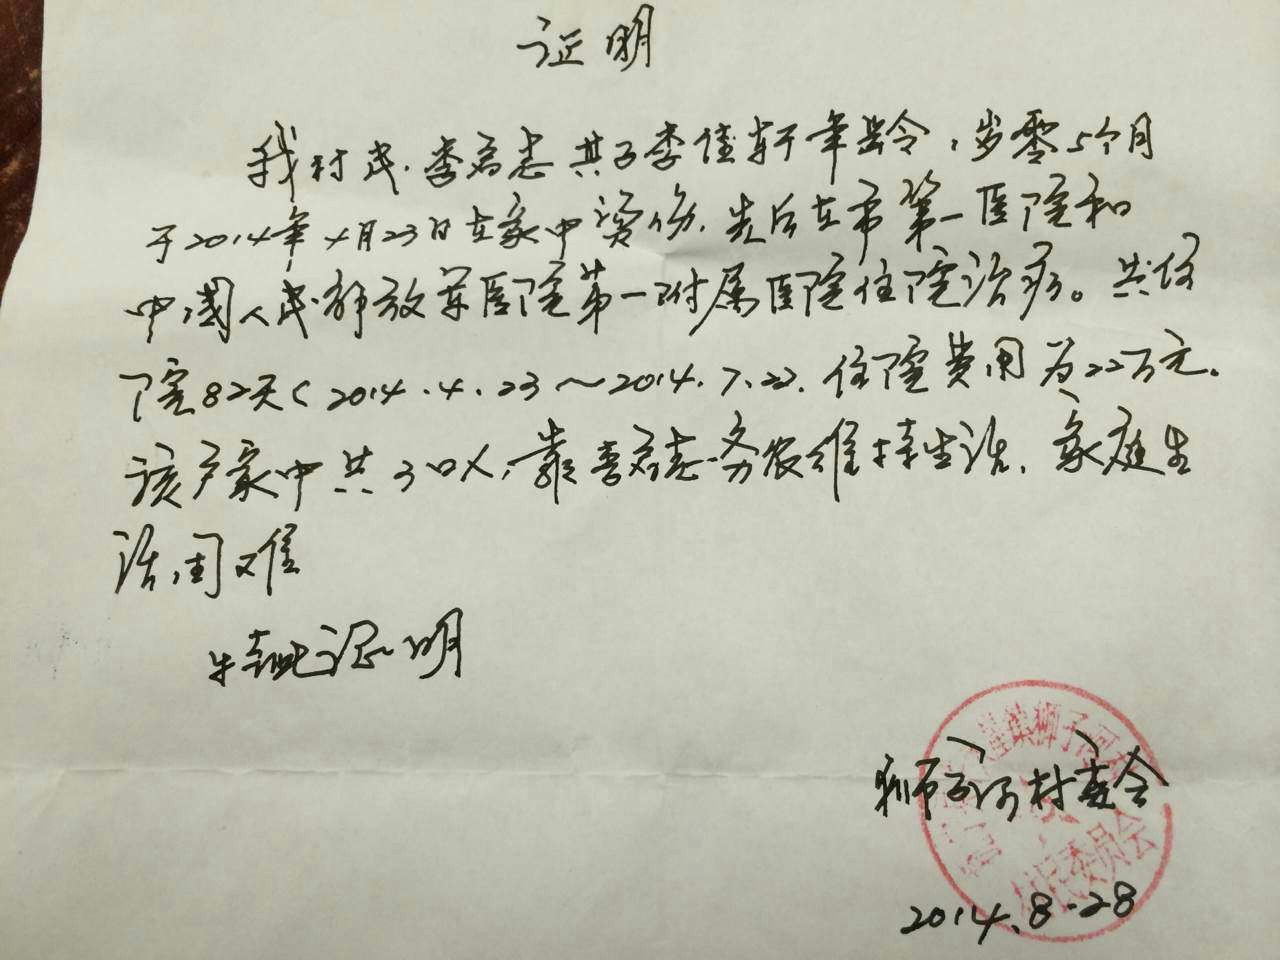 证明
我村民李启志其子李佳轩年龄1岁零5个月
于2014年4月23日在家中烫伤.先后在市第一医院和
中国人民解放军医院第一附属医院住院治疗。共住
院82天(2014.4.23～2014.7.22.住院费用为22万元。
该户家中共3口人,靠李启志务农维持生活.家庭生
活困难
特此证明
狮子河村委会
2014.8.28